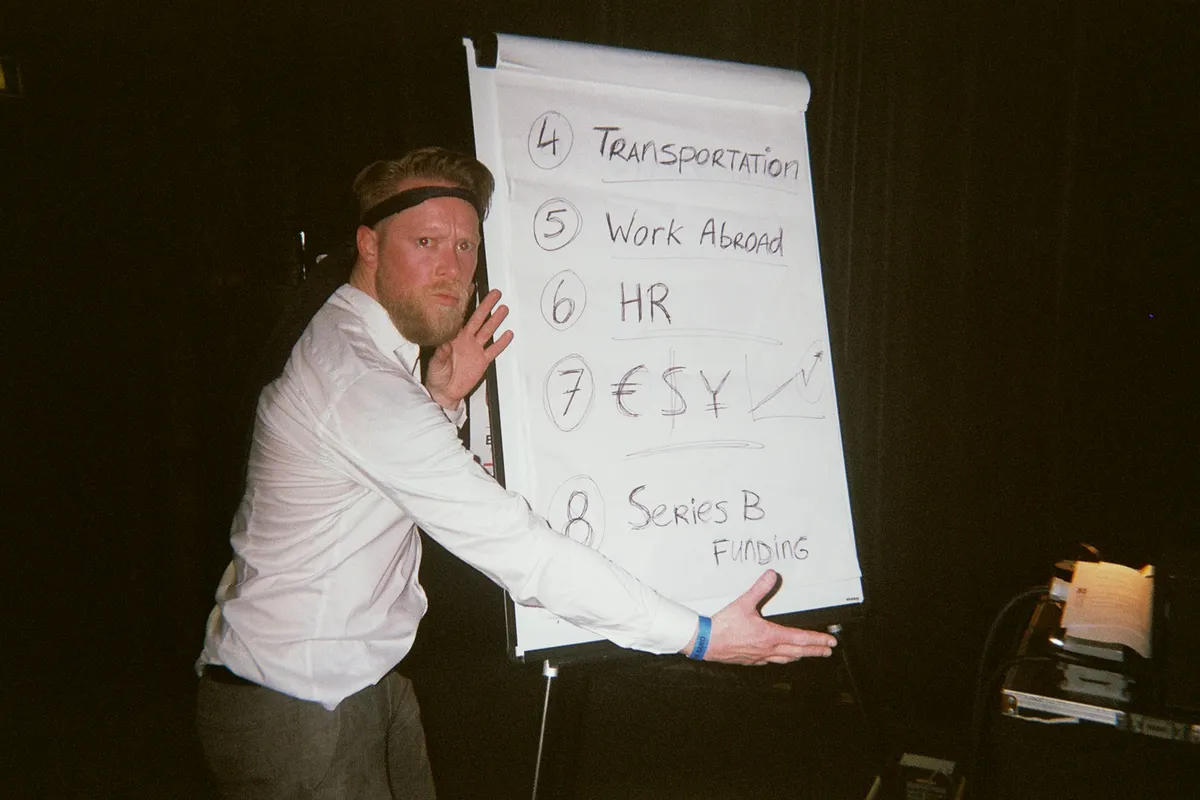 4 TRANSPORTATION
5 Work Abroad
6 HR
7 € $ ¥
8 Series B
Funding